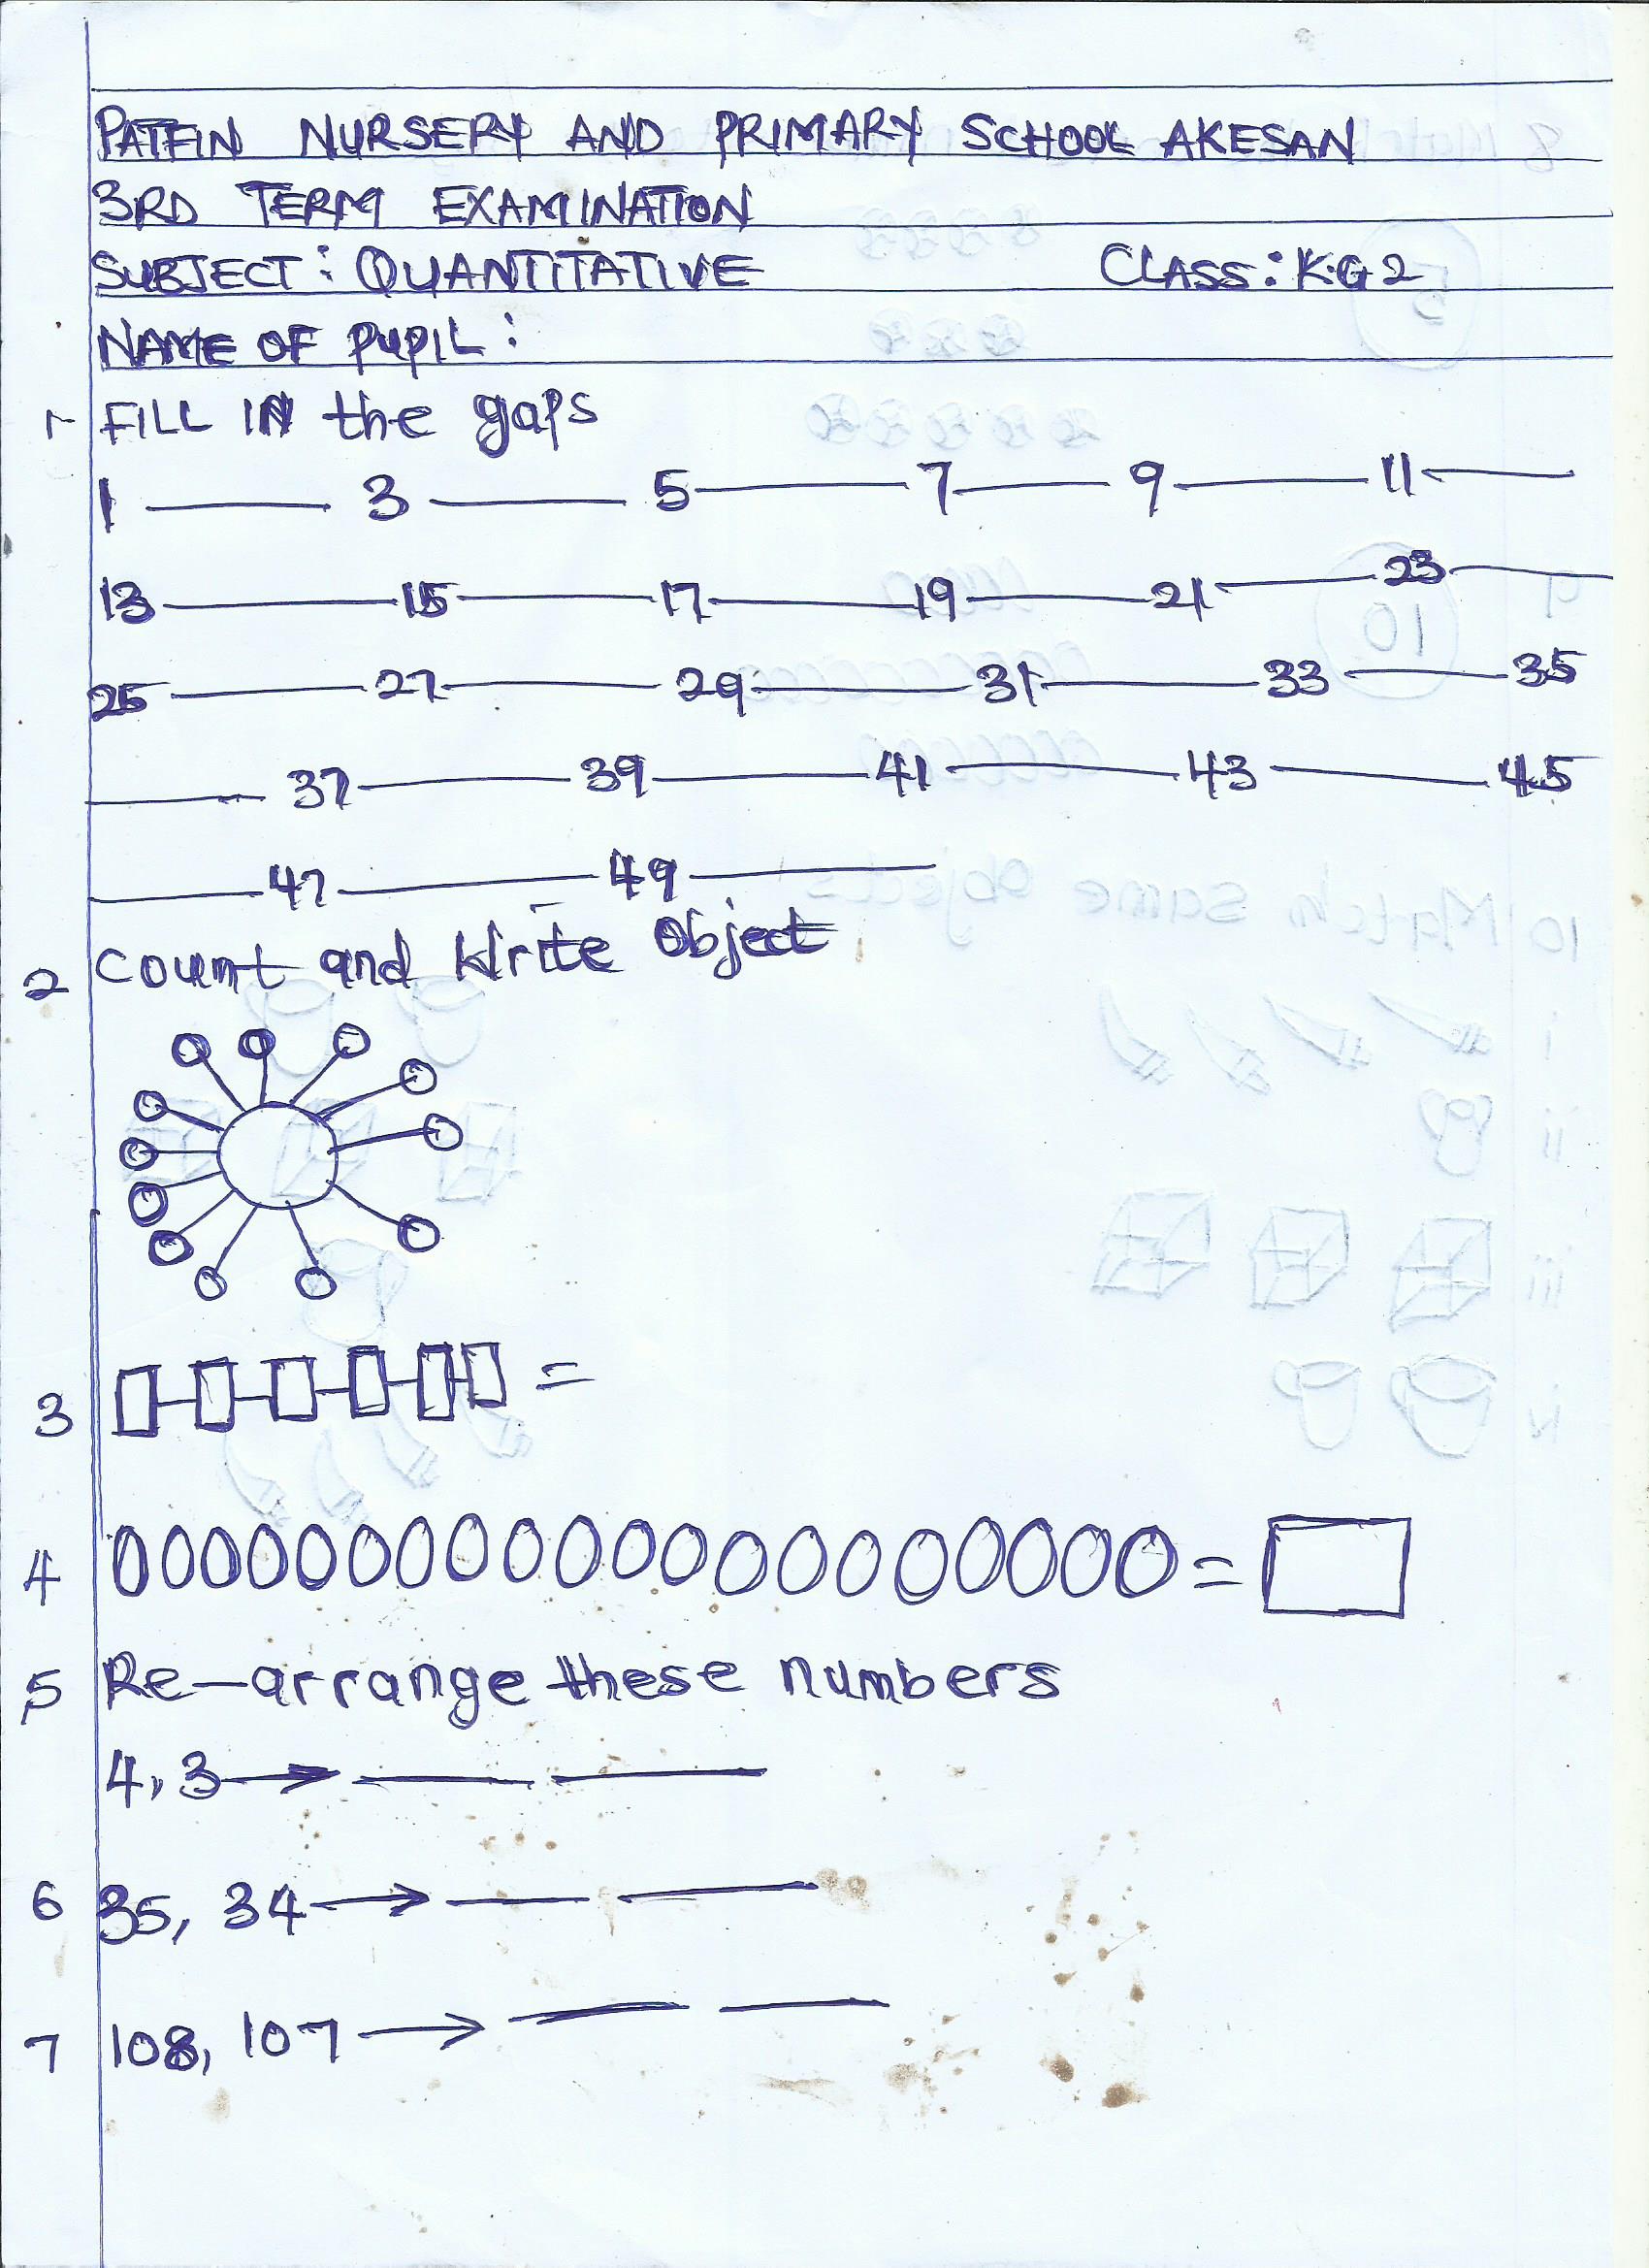 PATFIN NURSERY AND PRIMARY SCHOOL AKESAN
3RD TERM EXAMINATION
SUBJECT: QUANTITATIVE CLASS: K.G 2
NAME OF PUPIL:
1- FILL IN the gaps
1 ___ 3 ___ 5 ___ 7 ___ 9 ___ 11 ___
13 ___ 15 ___ 17 ___ 19 ___ 21 ___ 23 ___
25 ___ 27 ___ 29 ___ 31 ___ 33 ___ 35
___ 37 ___ 39 ___ 41 ___ 43 ___ 45
___ 47 ___ 49 ___
2 Count and Write Object
3 =
4 =
5 Re-arrange these numbers
4, 3 → ___ ___
6 35, 34 → ___ ___
7 108, 107 → ___ ___